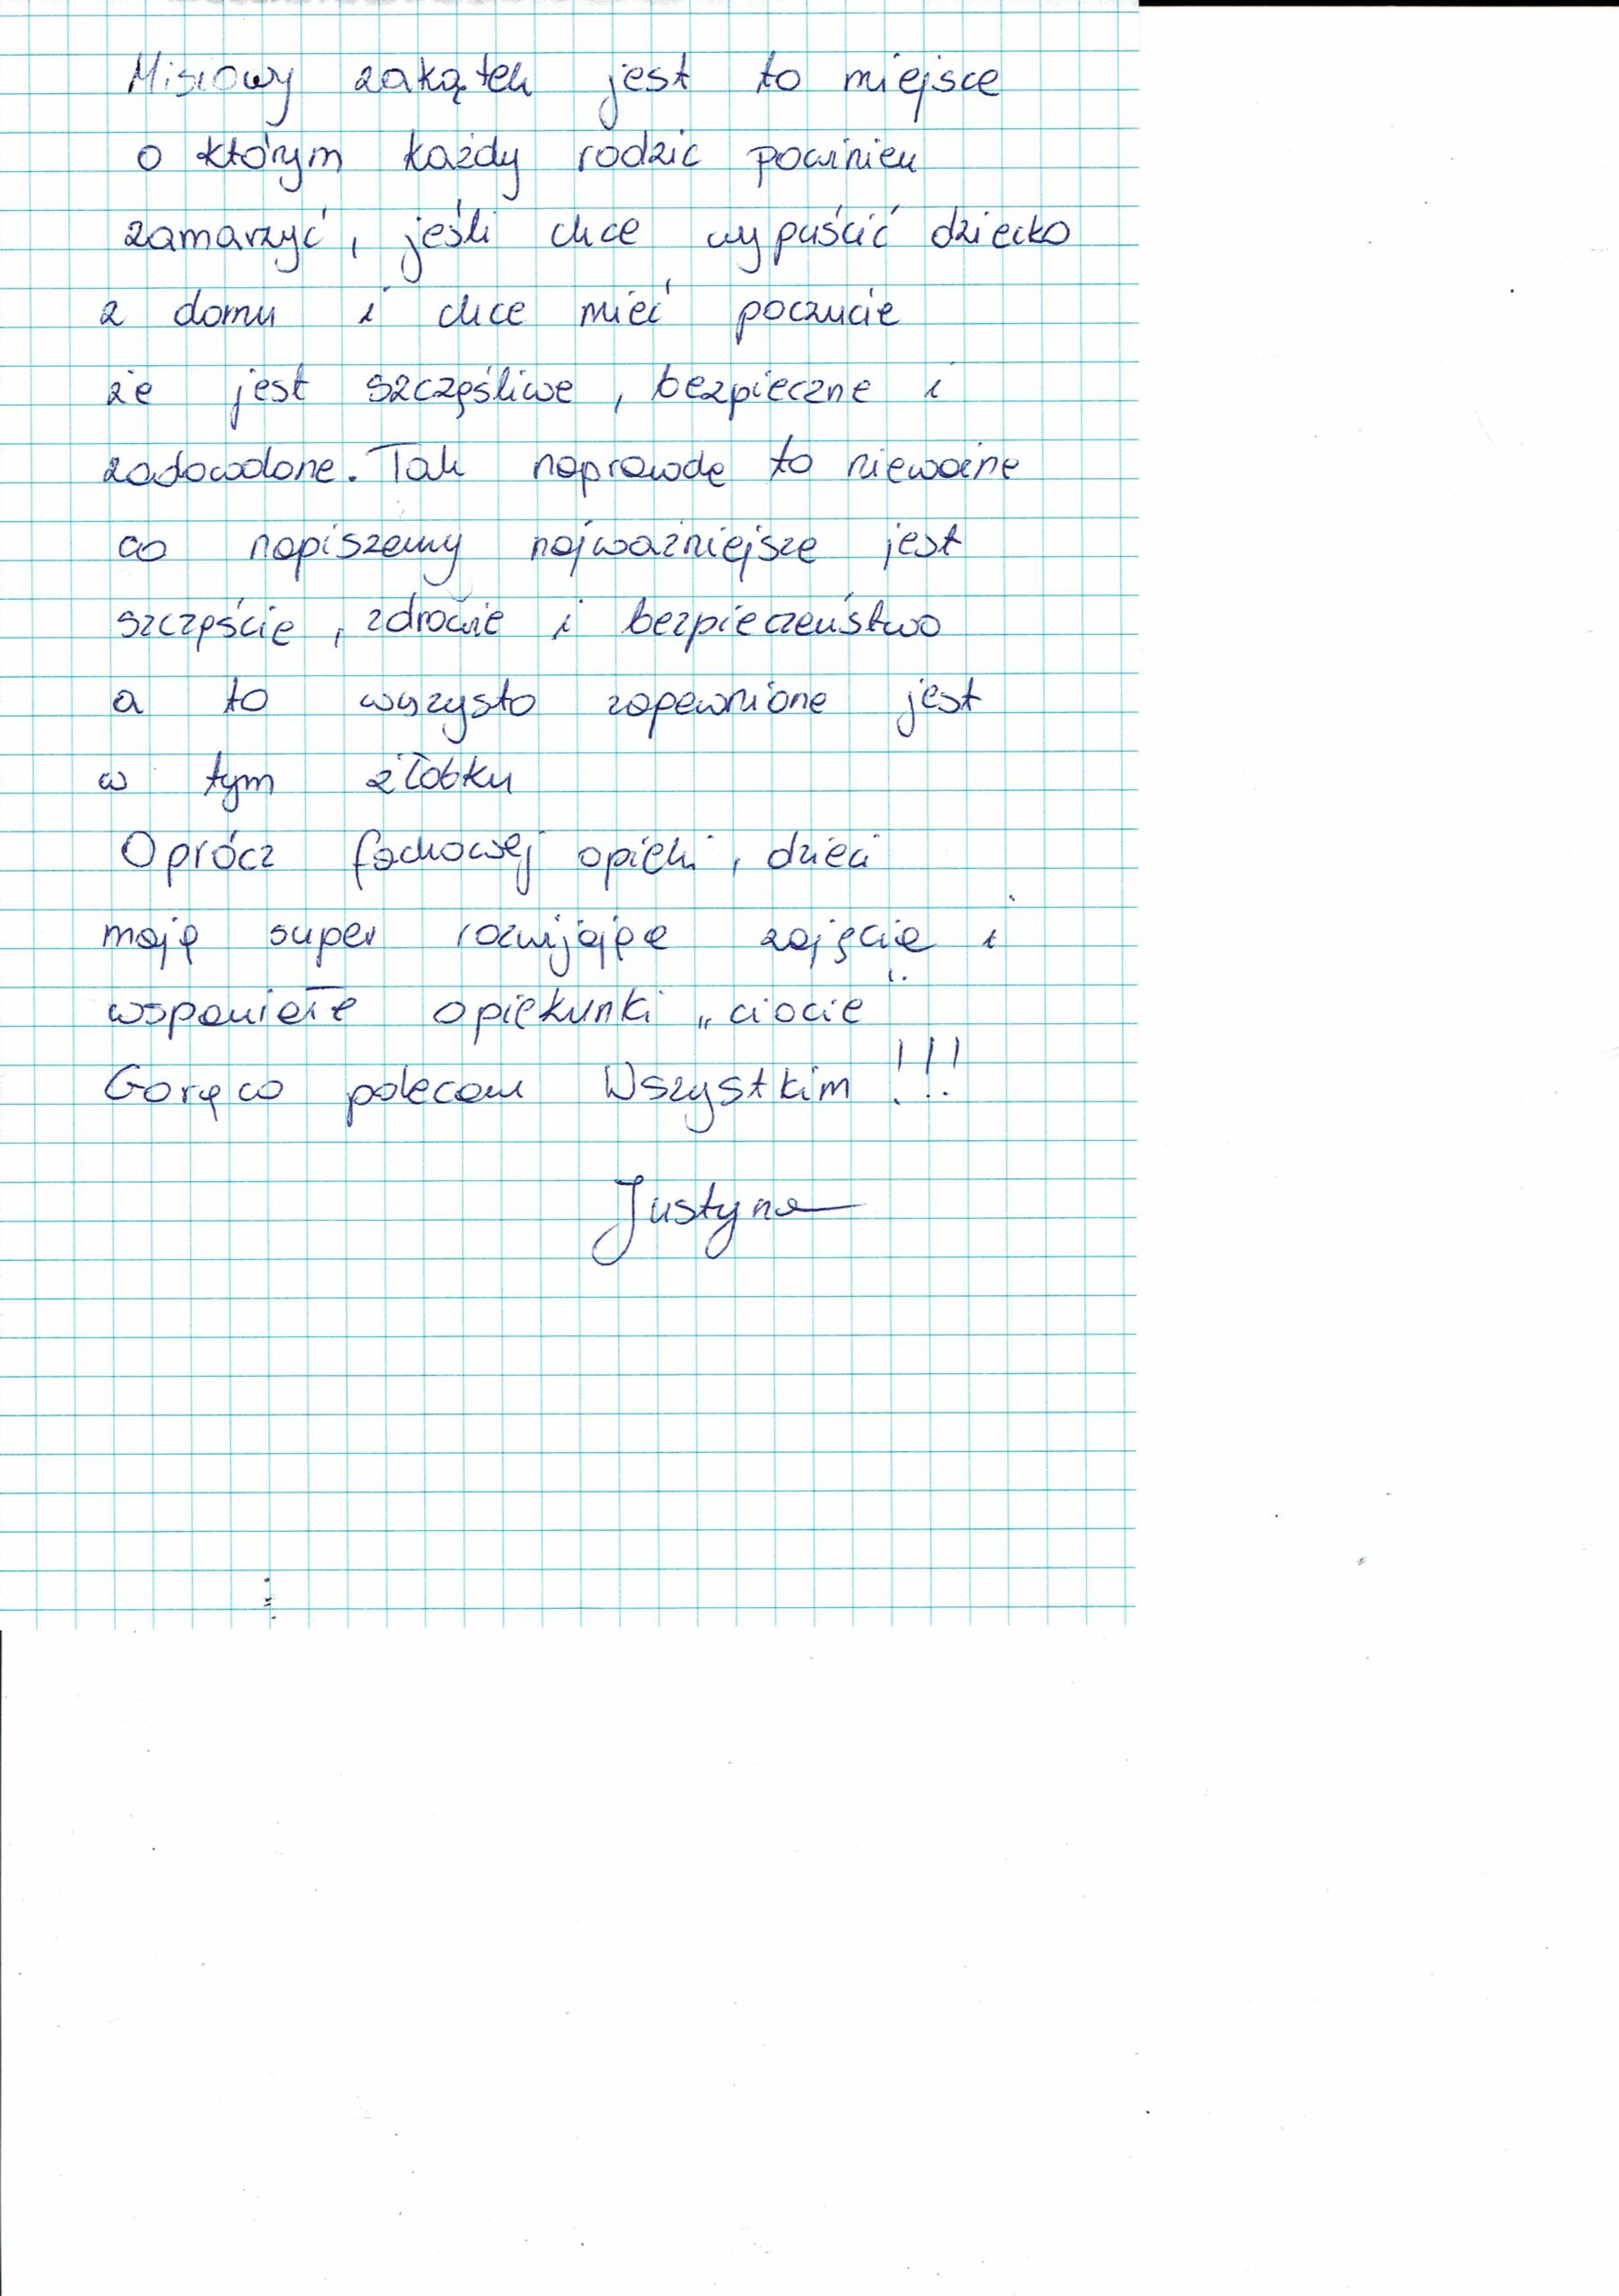 Misiowy zakątek jest to miejsce
o którym każdy rodzic powinien
zamarzyć, jeśli chce wypuścić dziecko
z domu i chce mieć poczucie
że jest szczęśliwe, bezpieczne i
zadowolone. Tak naprawdę to nieważne
co napiszemy najważniejsze jest
szczęście, zdrowie i bezpieczeństwo
a to wszysto zapewnione jest
w tym żłobku
Oprócz fachowej opieki, dzieci
mają super rozwijające zajęcia i
wspaniałe opiekunki „ciocie"
Gorąco polecam Wszystkim!!!
Justyna